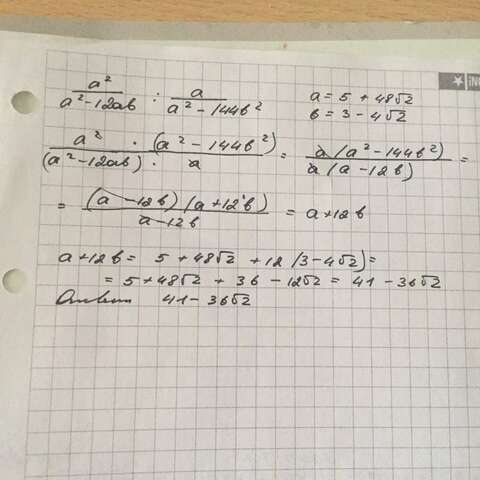 a²/(a²-12ab) : a/(a²-144b²) a = 5 + 48√2
b = 3 - 4√2
a² · (a²-144b²)/((a²-12ab) · a) = a(a²-144b²)/(a(a-12b)) =
= (a-12b)(a+12b)/(a-12b) = a+12b
a+12b = 5+48√2 + 12(3-4√2) =
= 5+48√2 + 36 - 12√2 = 41 - 36√2
Ответ 41-36√2